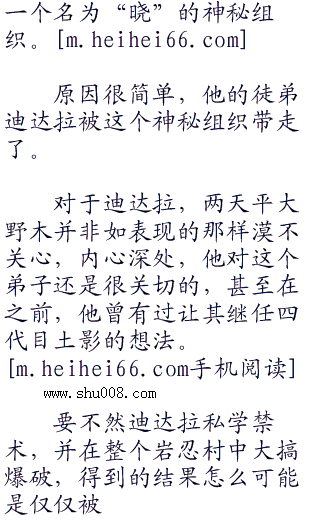 一个名为“晓”的神秘组
织。[m.heihei66.com]
原因很简单，他的徒弟
迪达拉被这个神秘组织带走
了。
对于迪达拉，两天平大
野木并非如表现的那样漠不
关心，内心深处，他对这个
弟子还是很关切的，甚至在
之前，他曾有过让其继任四
代目土影的想法。
[m.heihei66.com手机阅读]
www.shu008.com
要不然迪达拉私学禁
术，并在整个岩忍村中大搞
爆破，得到的结果怎么可能
是仅仅被